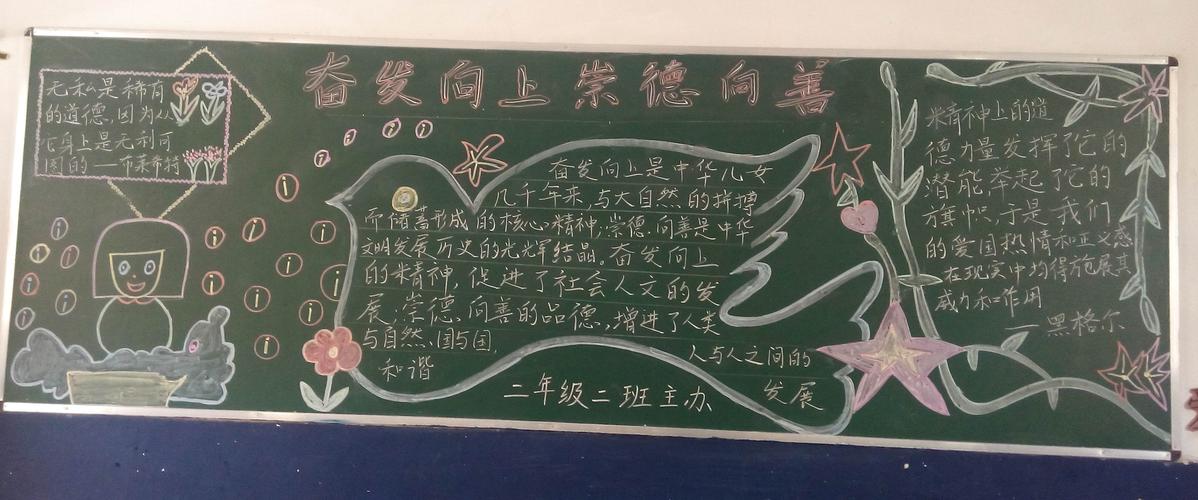 奋发向上崇德向善
无私是稀有
的道德,因为从
它身上是无利可
图的——布莱希特
奋发向上是中华儿女
几千年来,与大自然的拼搏
而储蓄形成的核心精神,崇德向善是中华
文明发展历史的光辉结晶。奋发向上
的精神,促进了社会人文的发
展;崇德向善的品德,增进了人类
与自然、国与国,
人与人之间的
和谐
发展
二年级二班主办
精神上的道
德力量发挥了它的
潜能,举起了它的
旗帜,于是我们
的爱国热情和正义感
在现实中均得施展其
威力和作用
——黑格尔